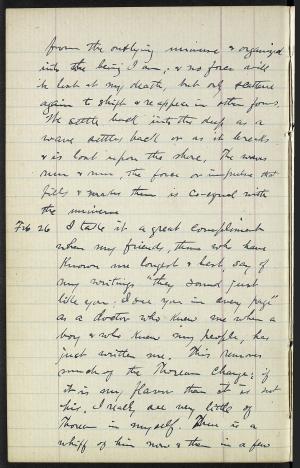 from the outlying universe & organized
into the being I am; & no force will
be lost at my death, but only
again to shift & reappear in other forms.
We settle back into the deep as a
wave settles back or as it breaks
& is lost upon the shore. The waves
run & run, the force or impulse that
fills & makes them is co-equal with
the universe
Feb 26 I take it a great compliment
when my friends, those who have
known me longest & best, say of
my writings "they sound just
like you. I see you in every page"
as a doctor who knew me when a
boy & who knew my people, has
just written me. This removes
much of the Thoreau charge; if
it is my flavor then it is not
his. I really see very little of
Thoreau in myself. There is a
whiff of him now & then in a few